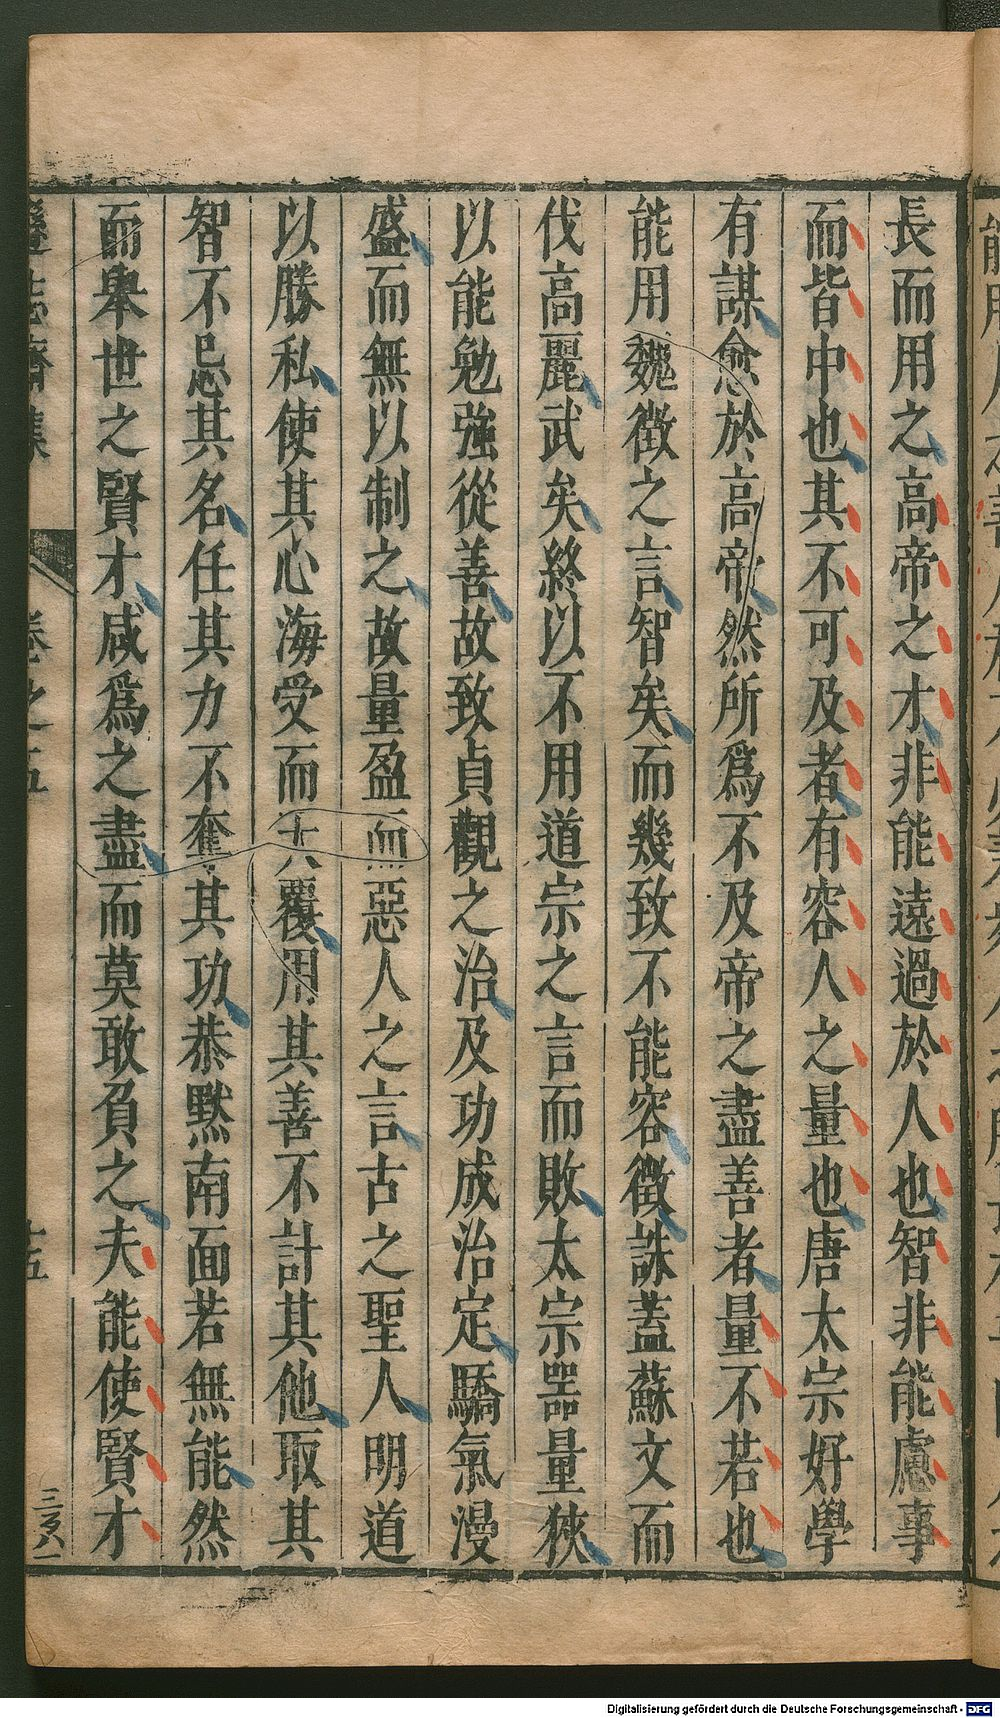 長而用之高帝之才非能遠過於人也智非能慮事
而皆中也其不可及者有容人之量也唐太宗好學
有謀愈於高帝然所爲不及帝之盡善者量不若也
能用魏徵之言智矣而幾致不能容徵誅蓋蘇文而
伐高麗武矣終以不用道宗之言而敗太宗器量狹
以能勉強從善故致貞觀之治及功成治定驕氣漫
盛而無以制之故量盈而惡人之言古之聖人明道
以勝私使其心海受而天覆用其善不計其他取其
智不忌其名任其力不奪其功恭默南面若無能然
而舉世之賢才咸爲之盡而莫敢負之夫能使賢才
遜志齋集
卷之五
十五
三百八一
Digitalisierung gefördert durch die Deutsche Forschungsgemeinschaft - DFG